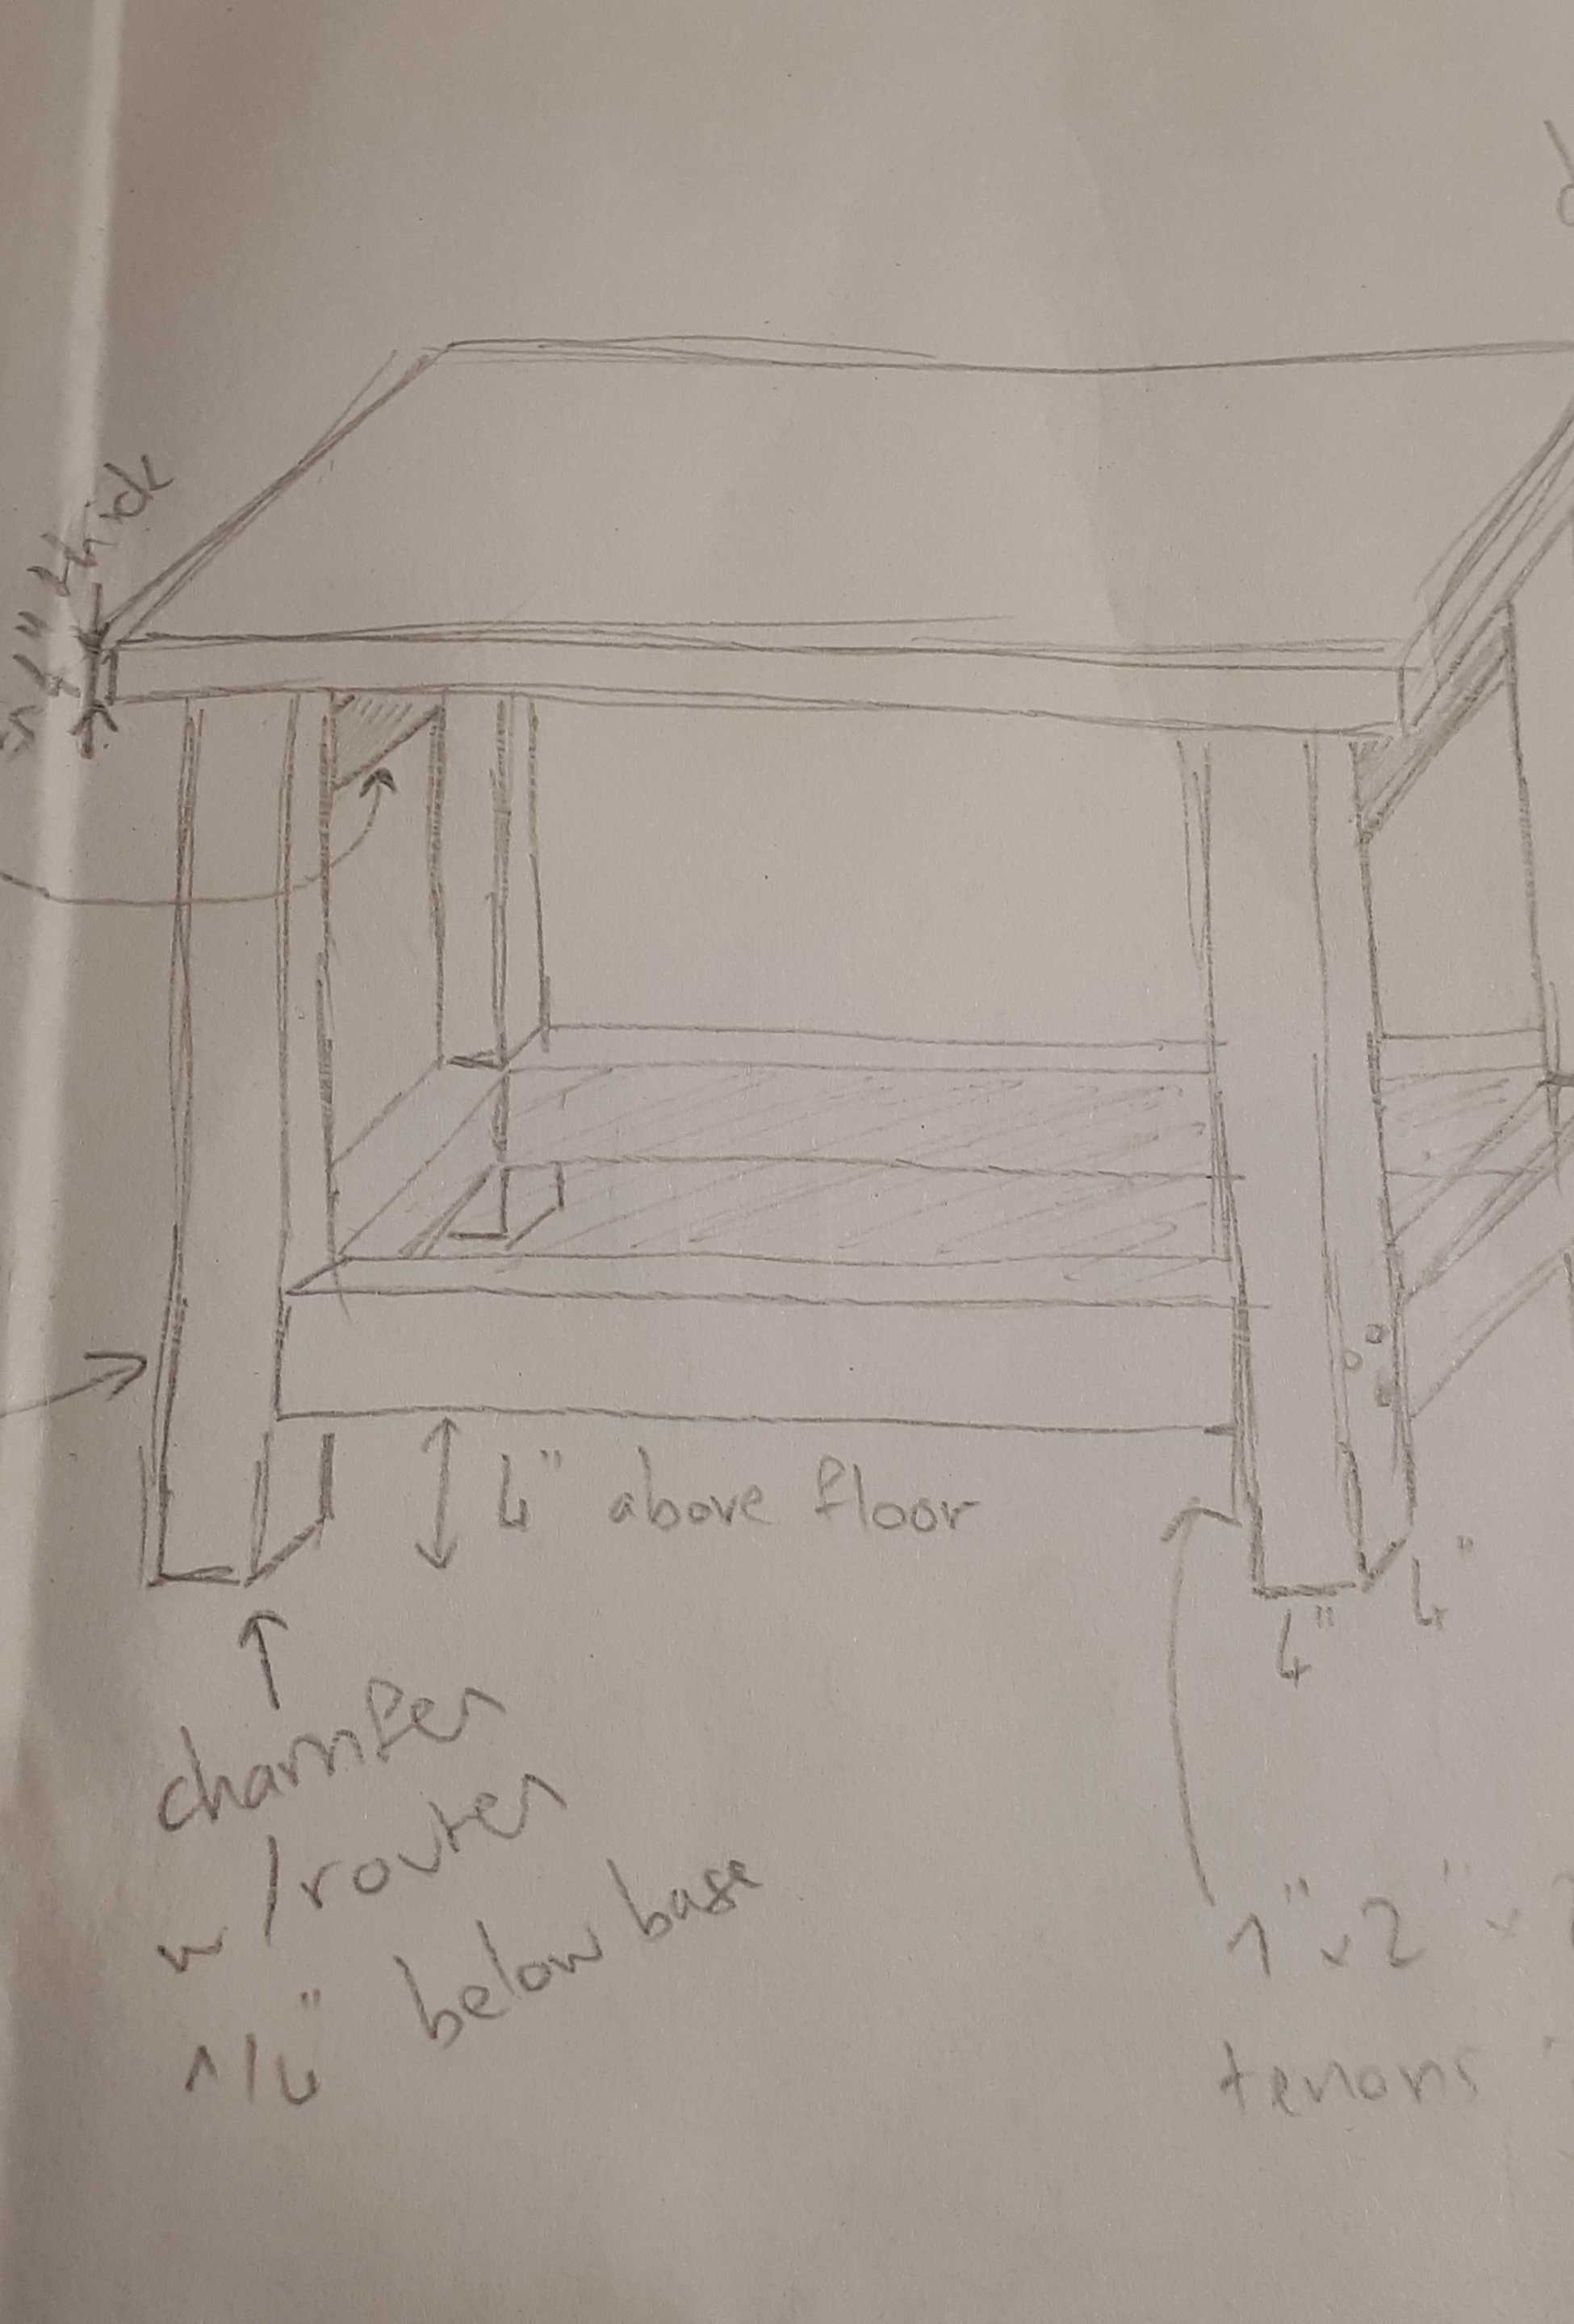 4" thick
4" above floor
4"
4"
chamfer
w/router
1/4" below base
1" x 2" x
tenons